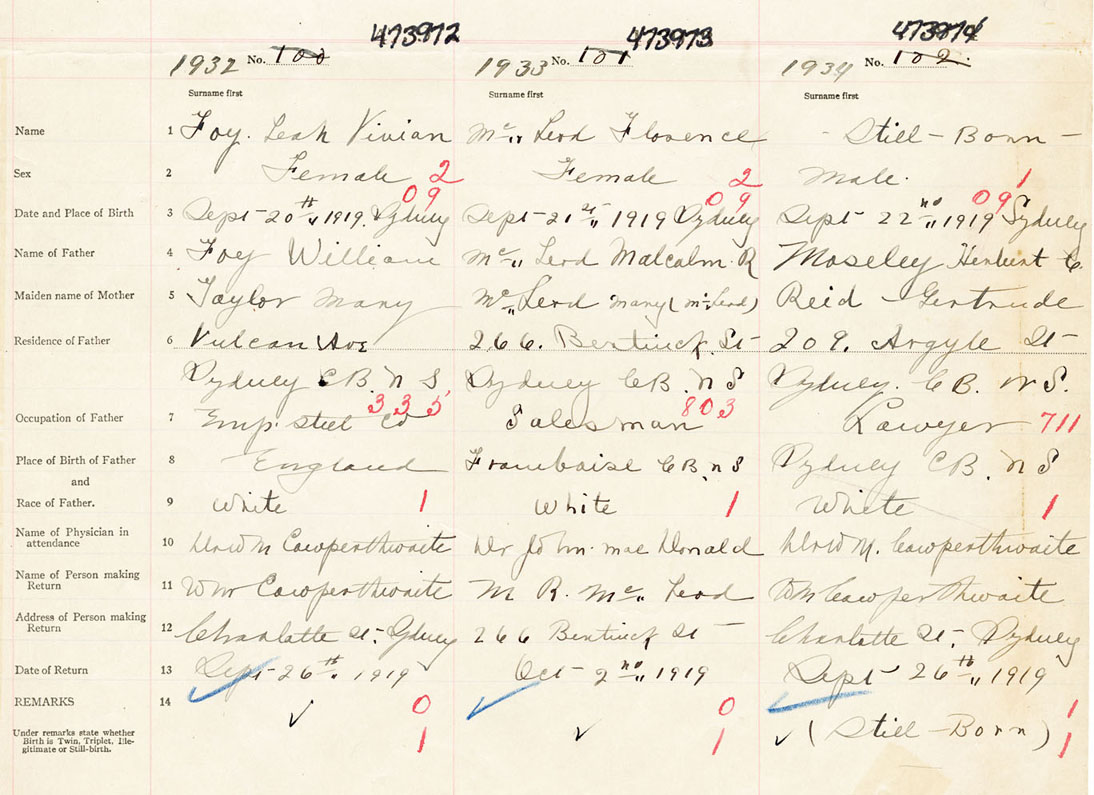 473972 473973 473974
1932 No. 100 1933 No. 101 1934 No. 102.
Surname first Surname first Surname first
Name 1 Foy. Leah Vivian Mc Leod Florence - Still-Born -
Sex 2 Female 2 Female 2 Male. 1
09 09 09
Date and Place of Birth 3 Sept-20th 1919 Sydney Sept-21st 1919 Sydney Sept 22nd 1919 Sydney
Name of Father 4 Foy William Mc Leod Malcalm. R Moseley Herbert C.
Maiden name of Mother 5 Taylor Mary Mc Leod Mary (Mc Leod) Reid - Gertrude
Residence of Father 6 Vulcan Ave 266. Bentinck. St- 209. Argyle St-
Sydney C B. N S. Sydney C B. N S Sydney. C B. N S.
335 803
Occupation of Father 7 Emp. Steel Co Salesman Lawyer 711
Place of Birth of Father 8 England Frambaise C B N S Sydney C B. N S
and
Race of Father. 9 White 1 White 1 White 1
Name of Physician in
attendance 10 Dr Wm Cowperthwaite Dr John. Mac Donald Dr Wm. Cowperthwaite
Name of Person making
Return 11 Wm Cowperthwaite M R. Mc Leod Wm Cowperthwaite
Address of Person making
Return 12 Charlotte St. Sydney 266 Bentinck St- Charlotte St- Sydney
Date of Return 13 Sept-26th 1919 Oct-2nd 1919 Sept 26th 1919
REMARKS 14 0 0 1
Under remarks state whether
Birth is Twin, Triplet, Ille-
gitimate or Still-birth. 1 1 (Still-Born) 1